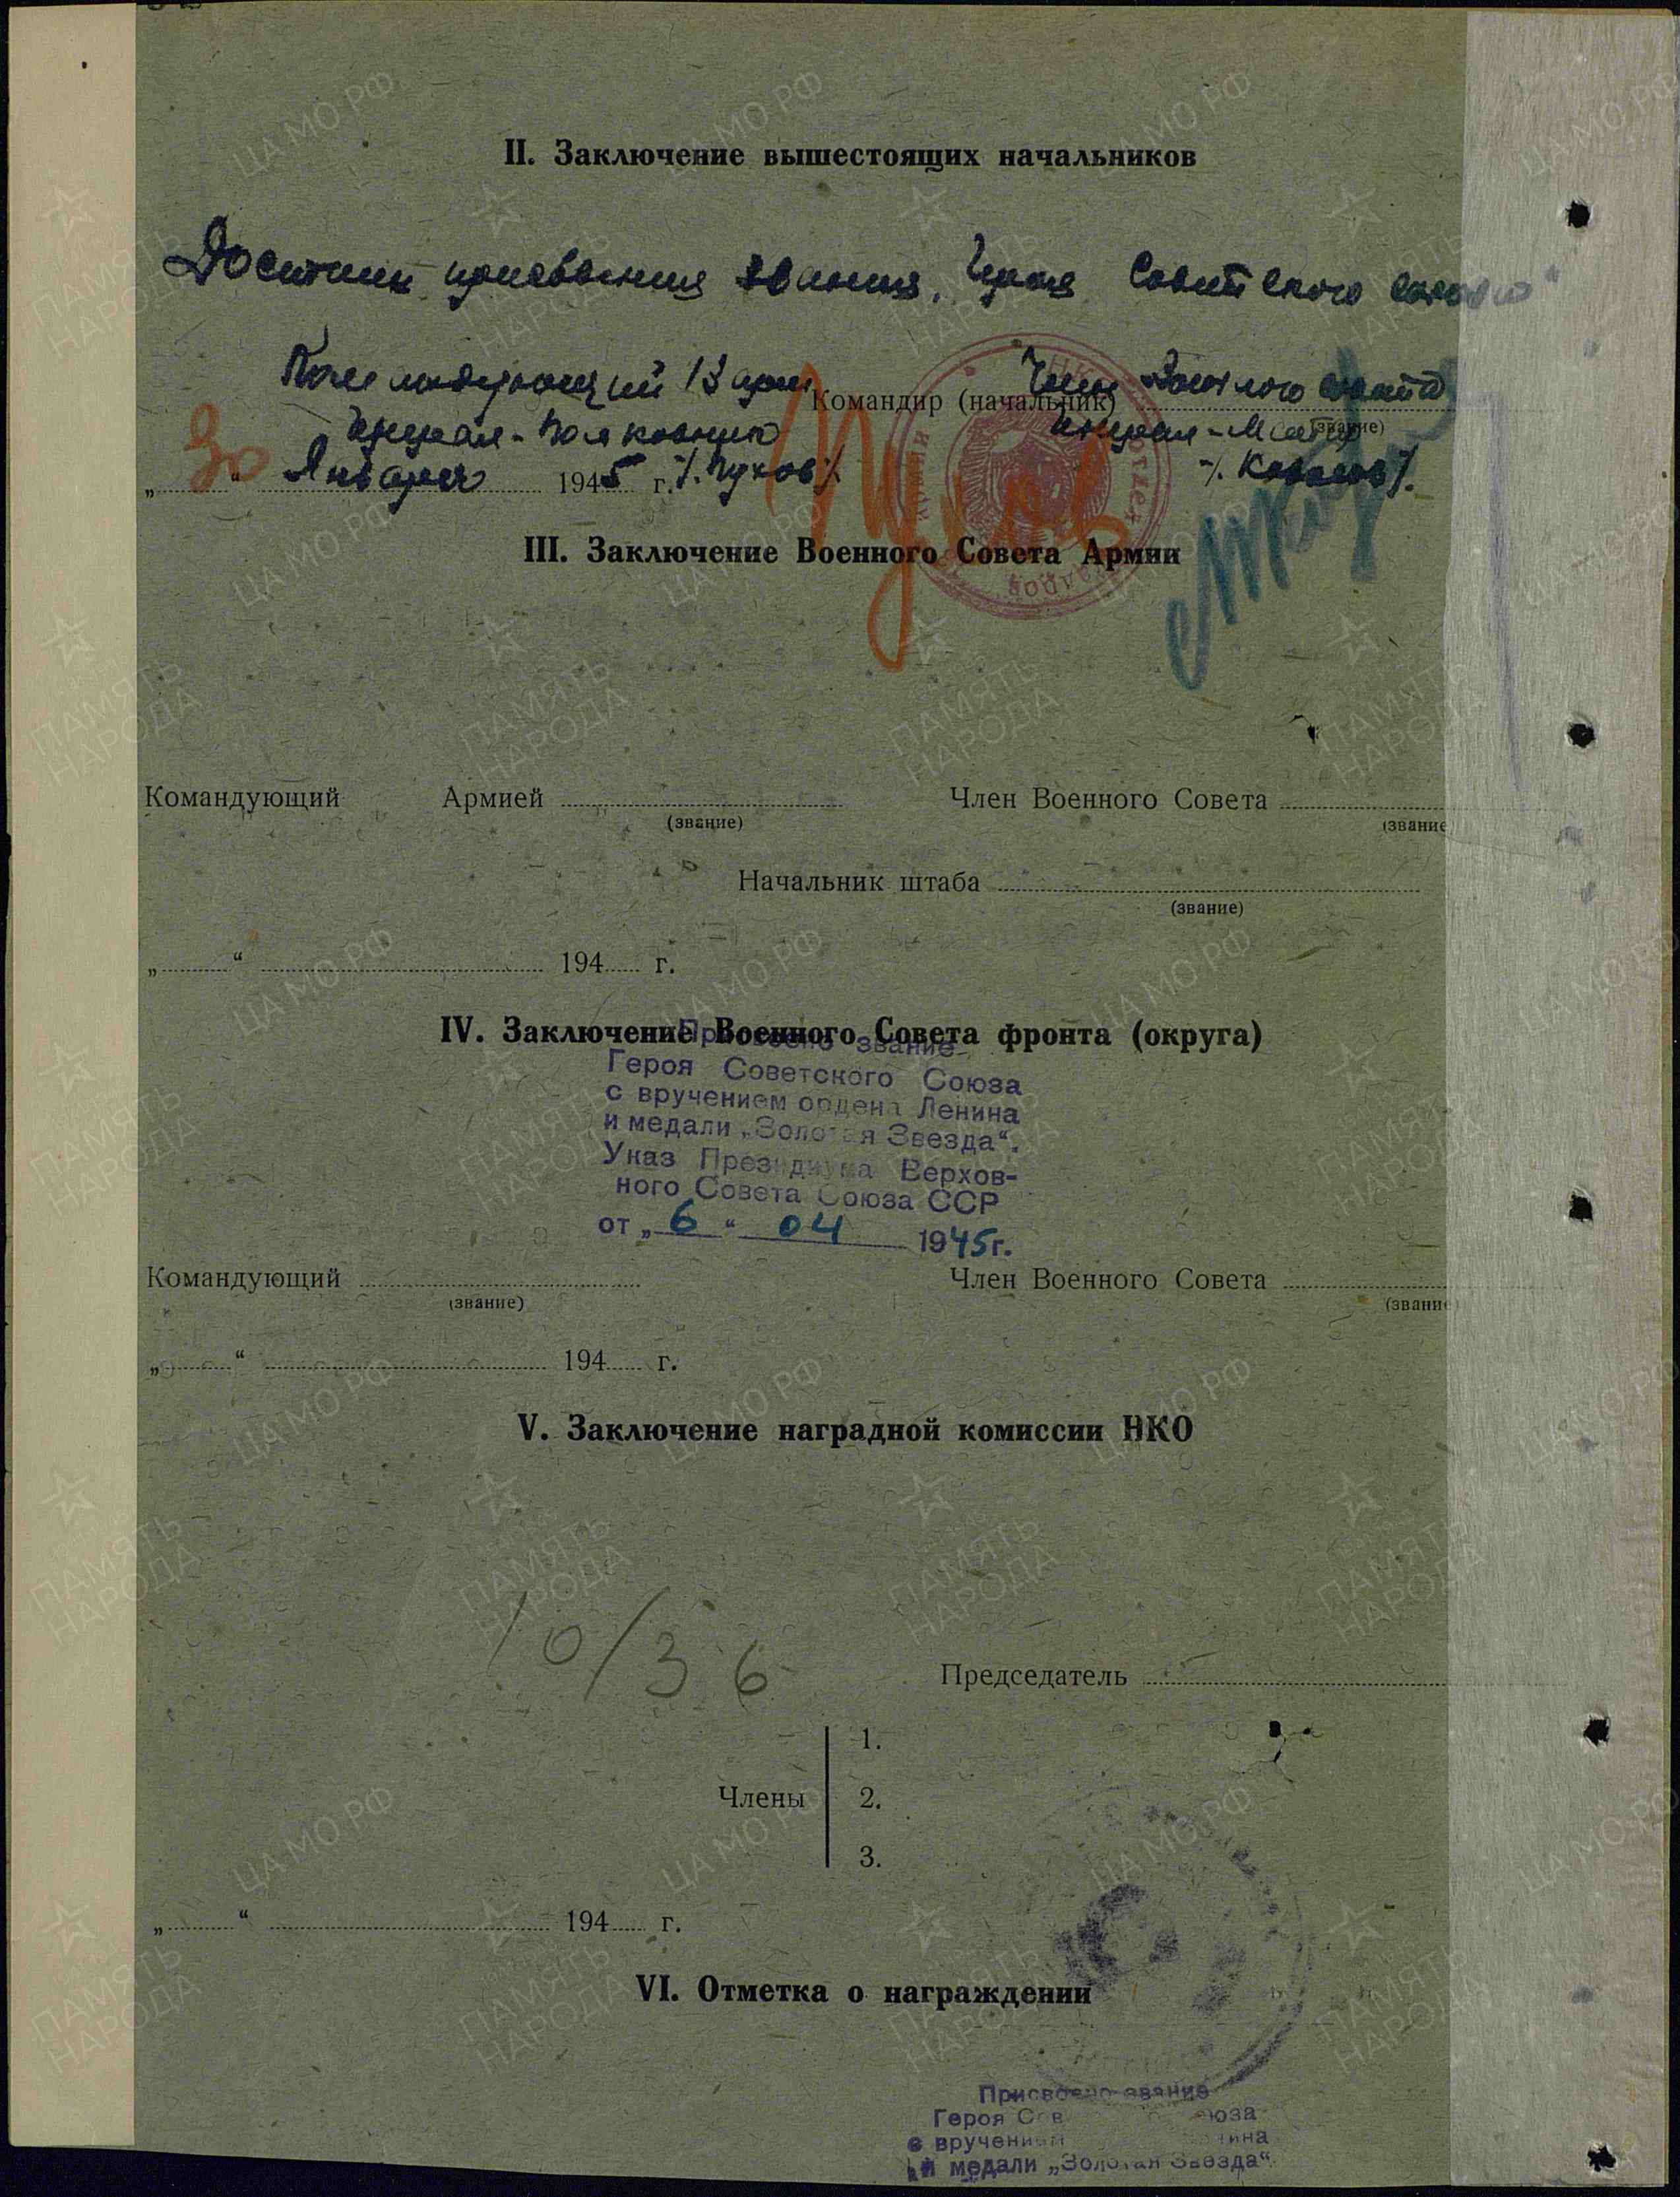 II. Заключение вышестоящих начальников
Достоин присвоения звания „Героя Советского Союза“
Командующий 13 арм.
Член Военного совета
Командир (начальник)
(звание)
Генерал-полковник
Генерал-Майор
„30“ Января 1945 г. /. Пухов /.
/. Козлов /.
Пухов
III. Заключение Военного Совета Армии
Командующий Армией
Член Военного Совета
(звание)
(звание
Начальник штаба
(звание)
„ “ 194 г.
IV. Заключение Военного Совета фронта (округа)
Присвоено звание
Героя Советского Союза
с вручением ордена Ленина
и медали „Золотая Звезда“.
Указ Президиума Верхов-
ного Совета Союза ССР
от „6“ 04 1945г.
Командующий
Член Военного Совета
(звание)
(звание
„ “ 194 г.
V. Заключение наградной комиссии НКО
10/36
Председатель
1.
Члены 2.
3.
„ “ 194 г.
VI. Отметка о награждении
Присвоено звание
Героя Сов юза
с вручением нина
и медали „Золотая Звезда“
ЦА МО РФ
ПАМЯТЬ НАРОДА